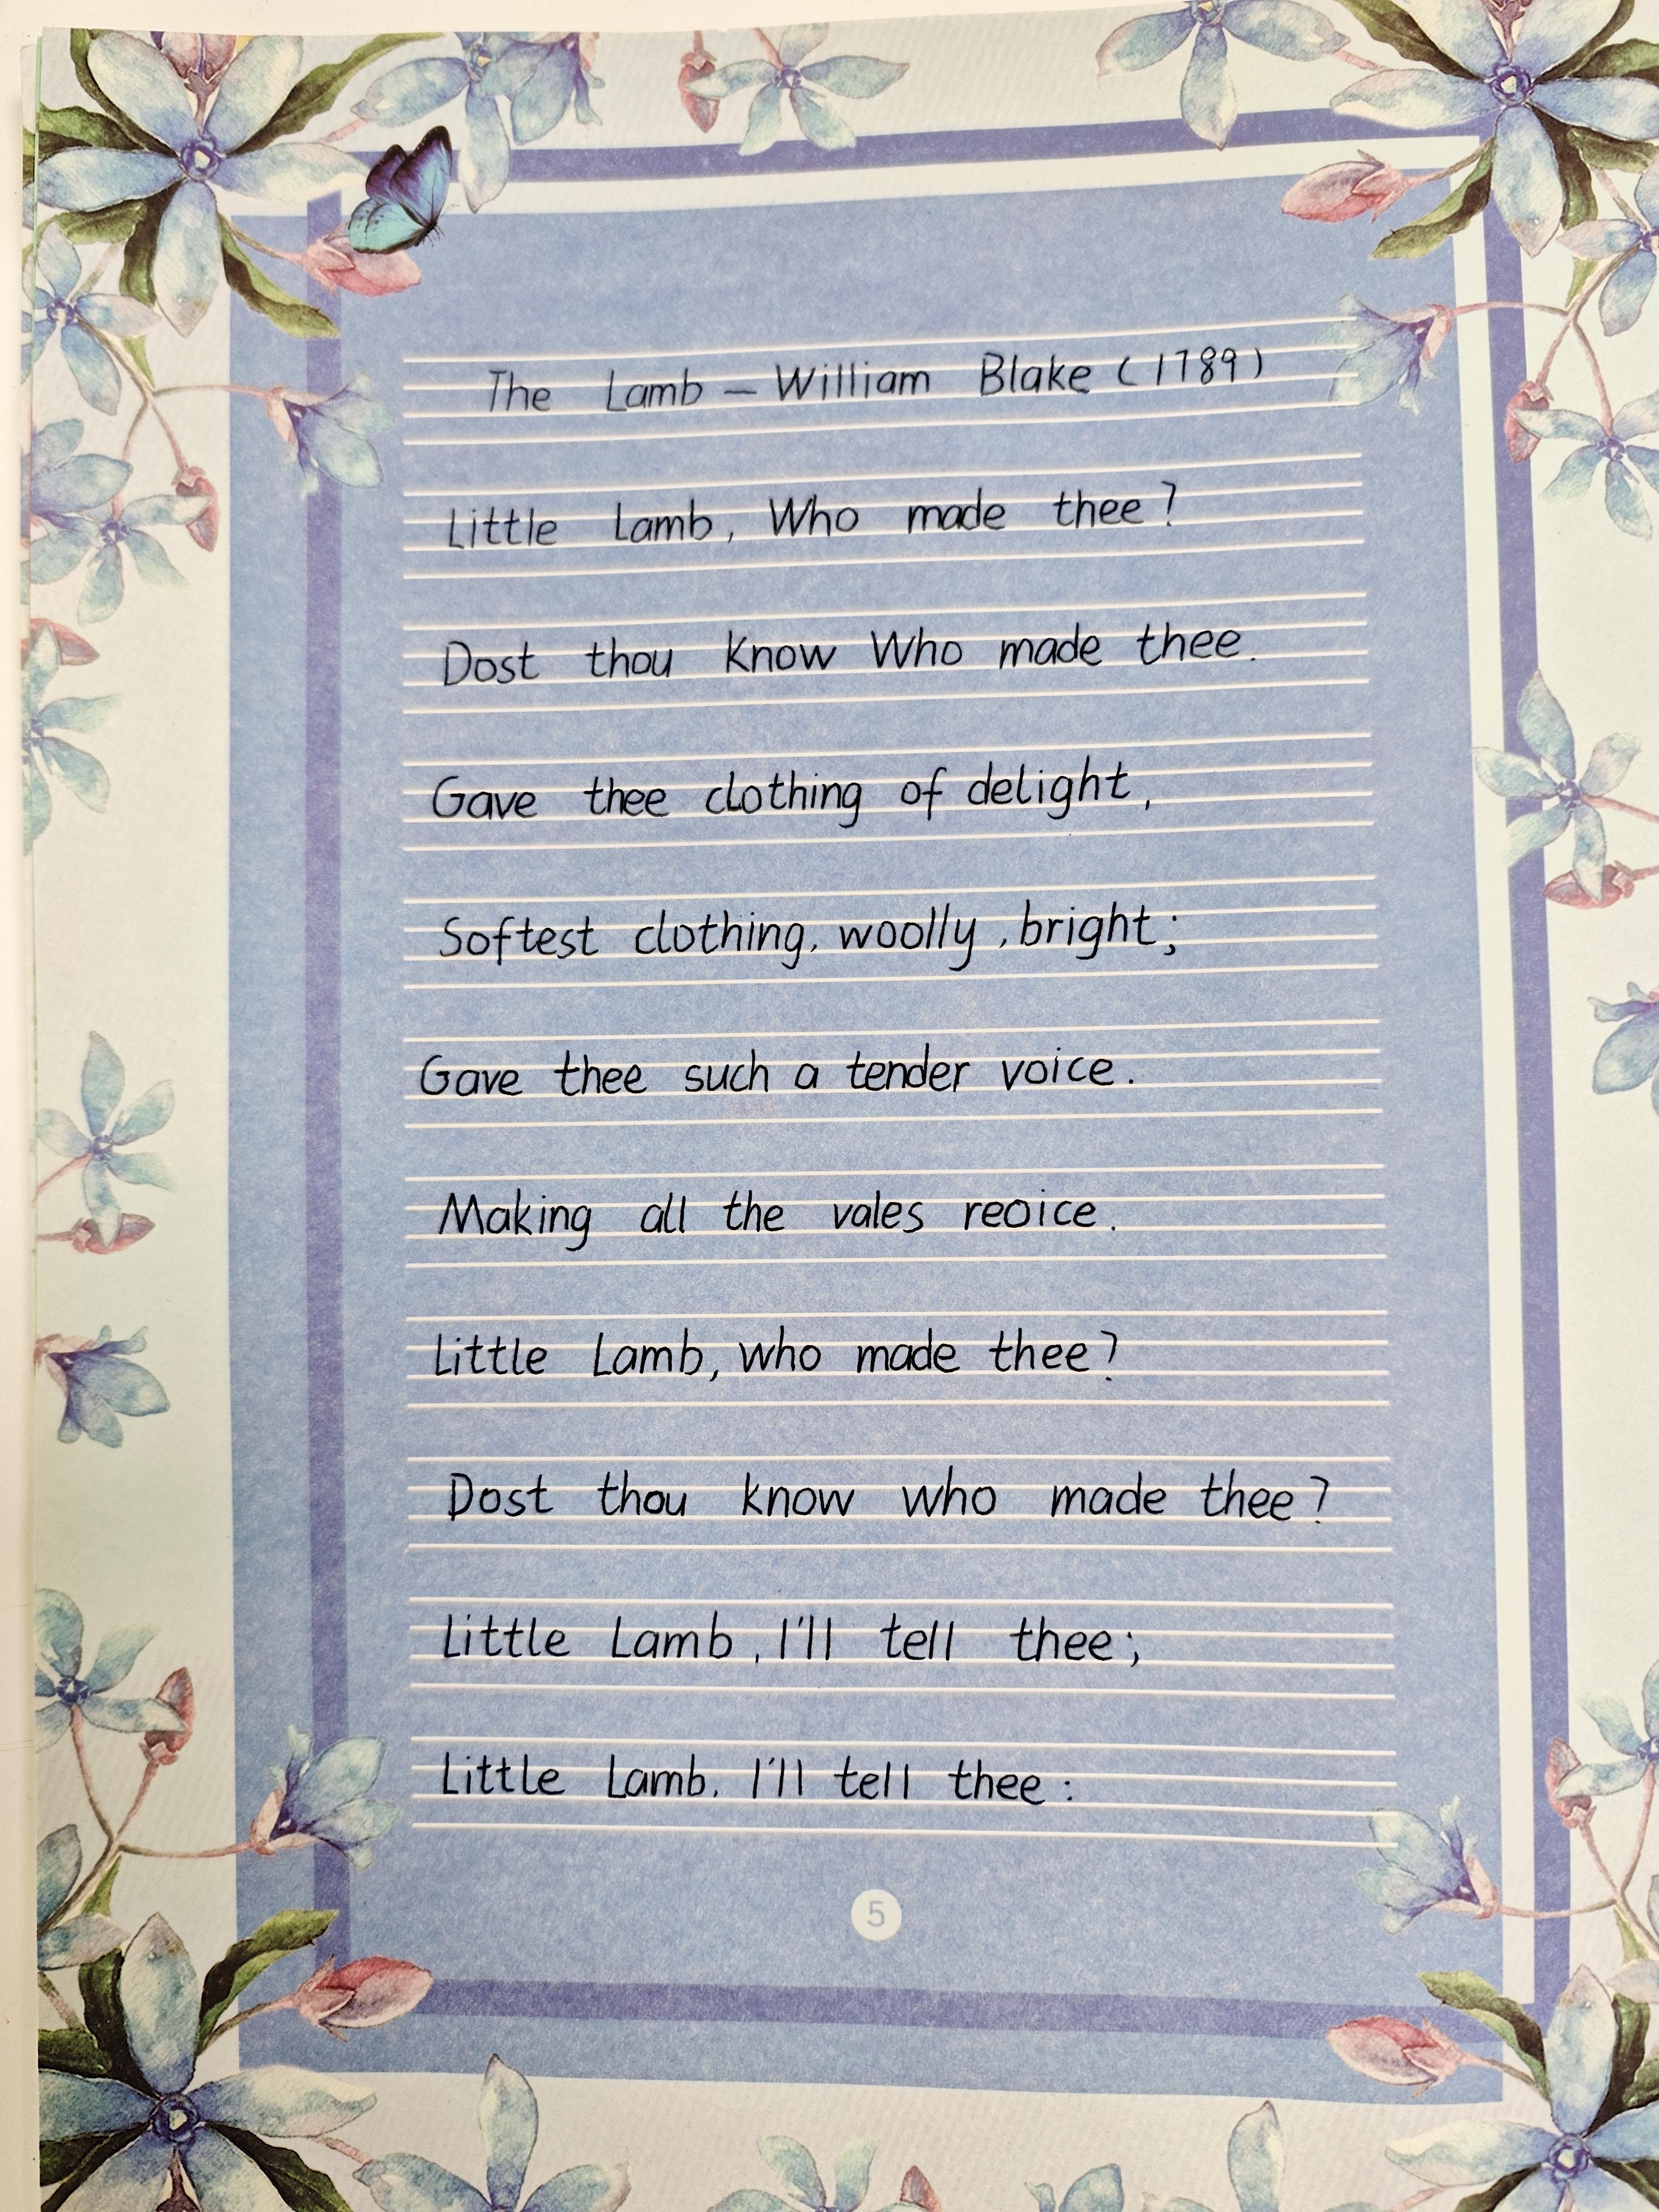 The Lamb — William Blake (1789)
Little Lamb, Who made thee?
Dost thou know Who made thee.
Gave thee clothing of delight,
Softest clothing, woolly, bright;
Gave thee such a tender voice.
Making all the vales reoice.
Little Lamb, who made thee?
Dost thou know who made thee?
Little Lamb, I'll tell thee;
Little Lamb. I'll tell thee:
5